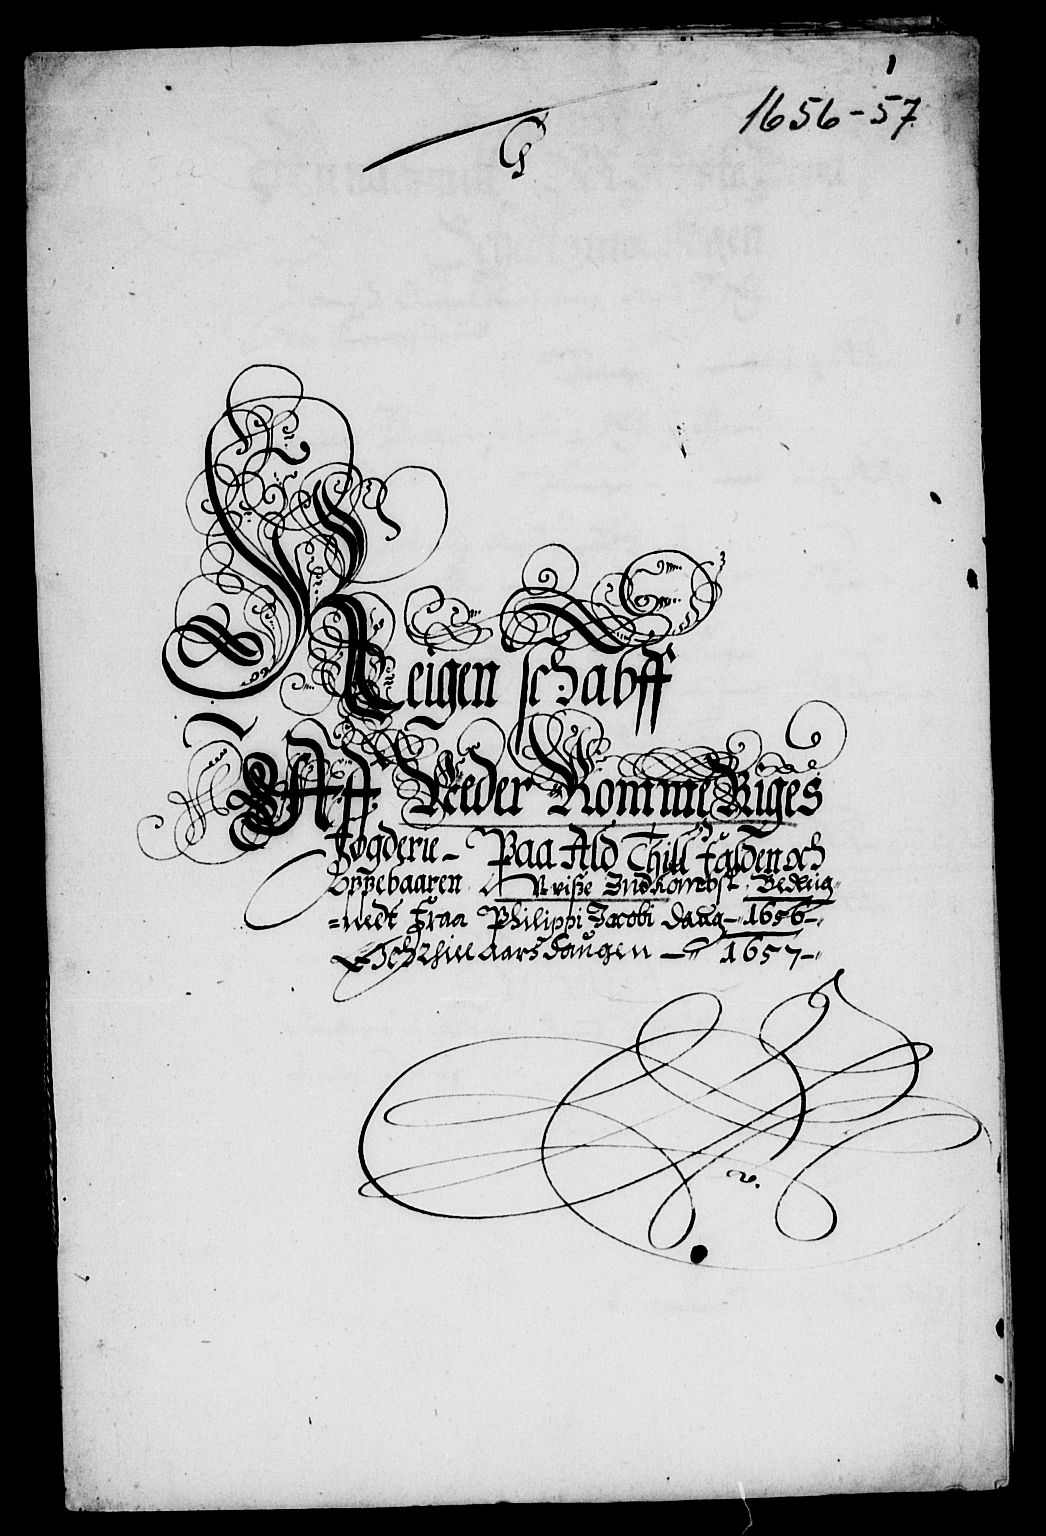 1656-57
Reigen schabff
Aff Neder Rommeriges
Fogderie - Paa Ald Thill falden och
Oppebaaren Uvisze Indkombst. Bereüg-
=nedt Fraa Philippi Jacobi daug - 1656 -
Och Thill aarsdaugen - 1657 -